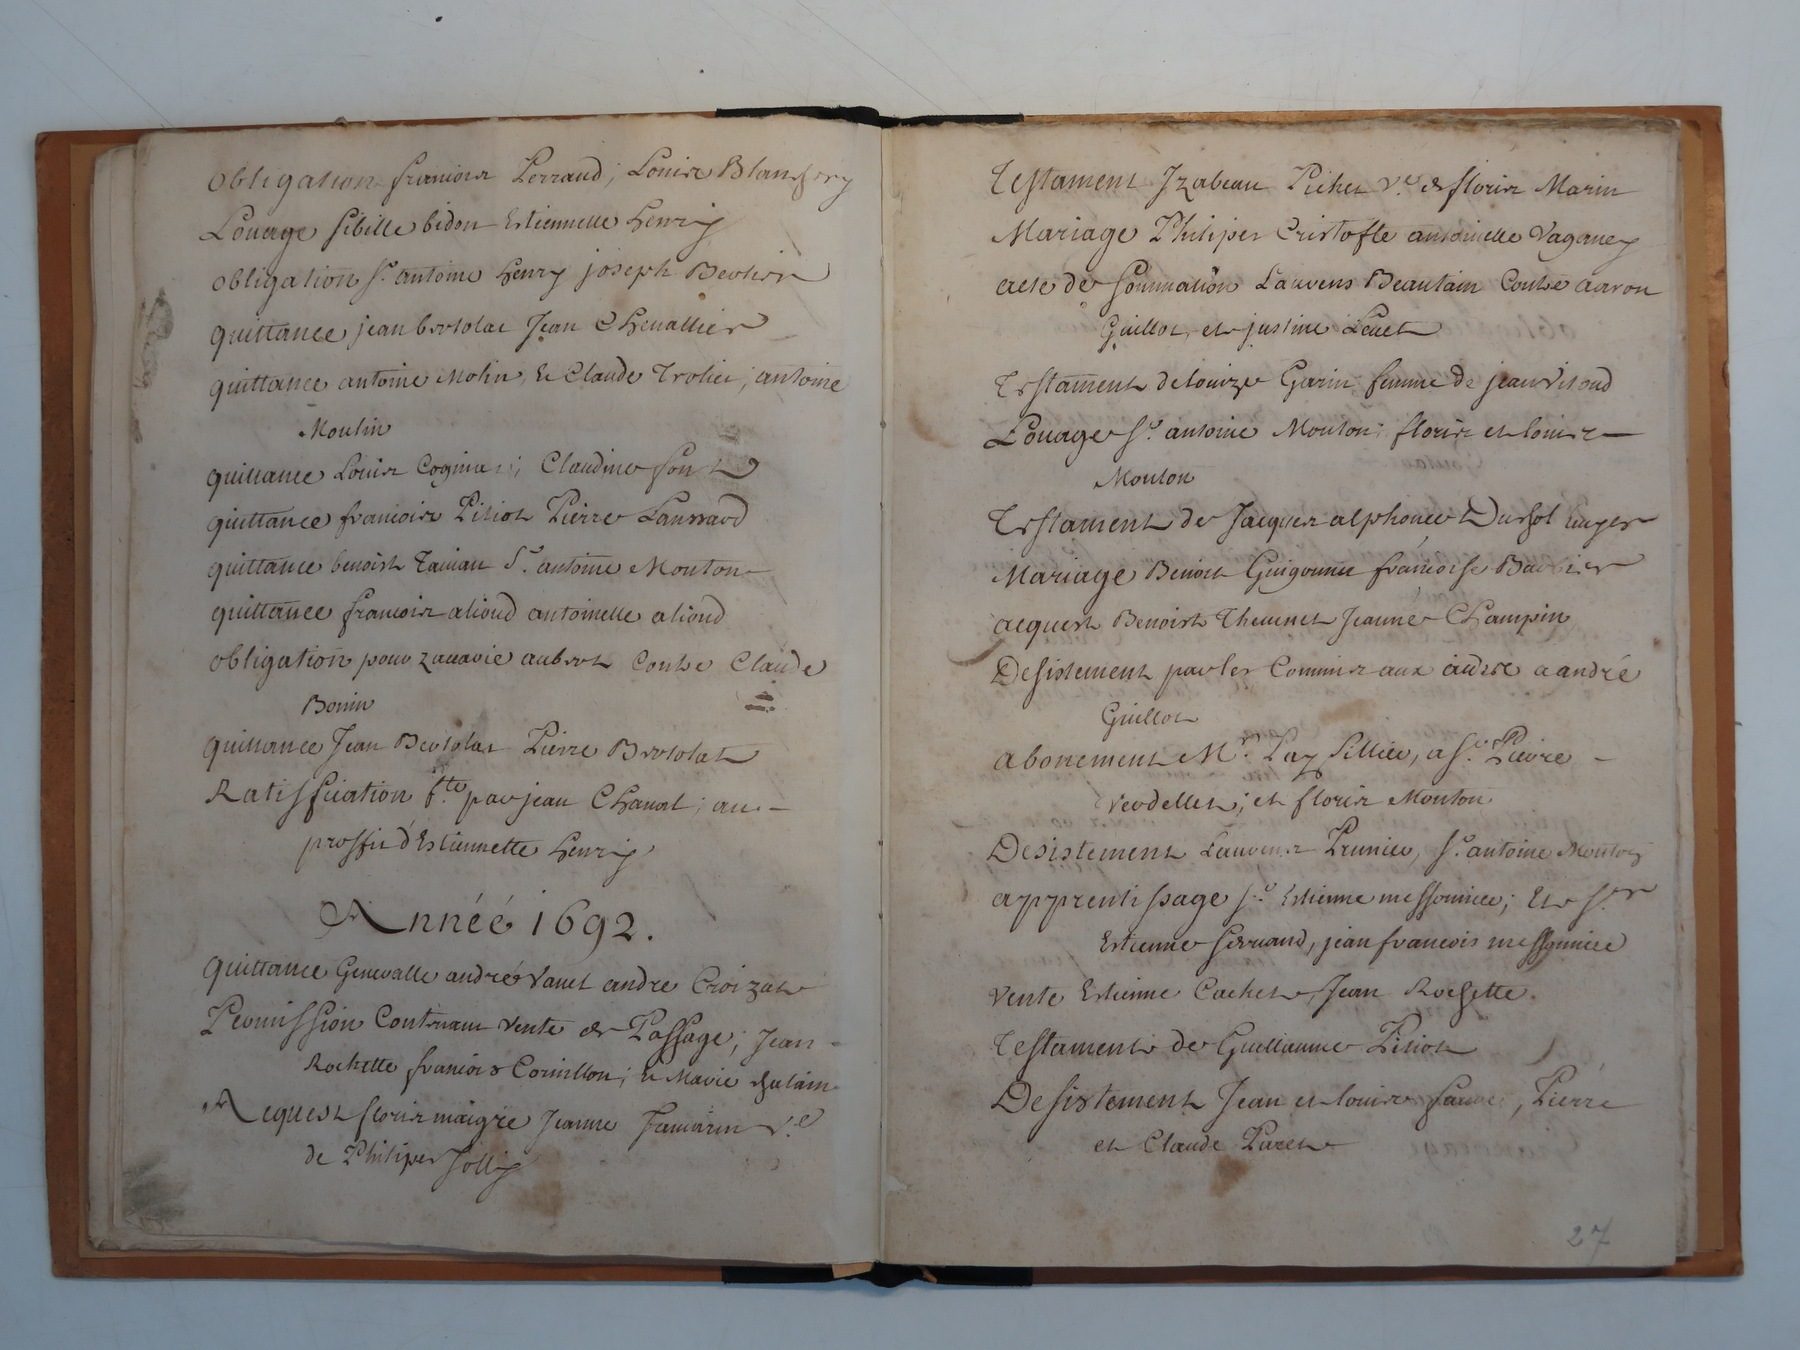 obligation francois Perraud; Louise Blanchery
Louage sibille bidon Estiennette henry
obligation sr. antoine henry joseph Bertier
quittance jean bertolat Jean Chevallier
quittance antoine Molin, & Claude Trolier; antoine
Moulin
quittance Louis Coginas; Claudine font
quittance francoise Pitiot Pierre Laurrard
quittance benoist Tavian Sr. antoine Mouton
quittance francois alioud antoinette alioud
obligation pour zacarie aubert Contre Claude
Bonin
quittance Jean Bertolat Pierre Bertolat
Ratiffication fte. par jean Chanal; au
proffit d'Estiennette henry
Année 1692.
quittance Generalle andré Vanel andre Croizat
Permission Contenant vente de Passage; Jean
Rochette francois Cornillon; & Marie
Acquest floris maigre Jeanne Jamarin ve.
de Philipes Jolly
Testament Izabeau Pichet ve. de floris Marin
Mariage Philipes Cristofle antoinette Vaganey
acte de sommation Laurens Beautain Contre aaron
Guillot, et justine Levet
Testament de louize Garin femme de jean Vitoud
Louage sr. antoine Mouton; floris et louise
Mouton
Testament de Jacques alphonce Dursol
Mariage Benoit Guigonnet francoise Barbier
acquest Benoist Thevenet Jeanne Champin
Desistement par les Commis aux aides a andré
Guillot
abonement Mr. Lay Sillier, a sr. Pierre
Verdellet; et floris Mouton
Desistement Laurens Prunier, sr. antoine Mouton
apprentissage sr. Estienne messonnier; & sr.
Estienne ferrand, jean francois messonnier
vente Estienne Cachet, Jean Rochette.
Testament de Guillaume Pitiot
Desistement Jean et louise faure, Pierre
et Claude Paret
27